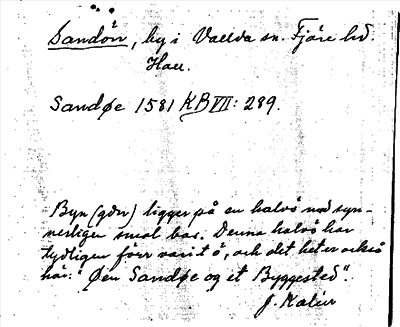 Sandön, by i Vallda sn. Fjäre hd.
Hall.
Sandøe 1581 KB VII: 289.
Byn (gdn) ligger på en halvö med syn-
nerligen smal bas. Denna halvö har
tydligen förr varit ö, och det heter också
här: "Øen Sandøe og et Byggested".
J. Kalén